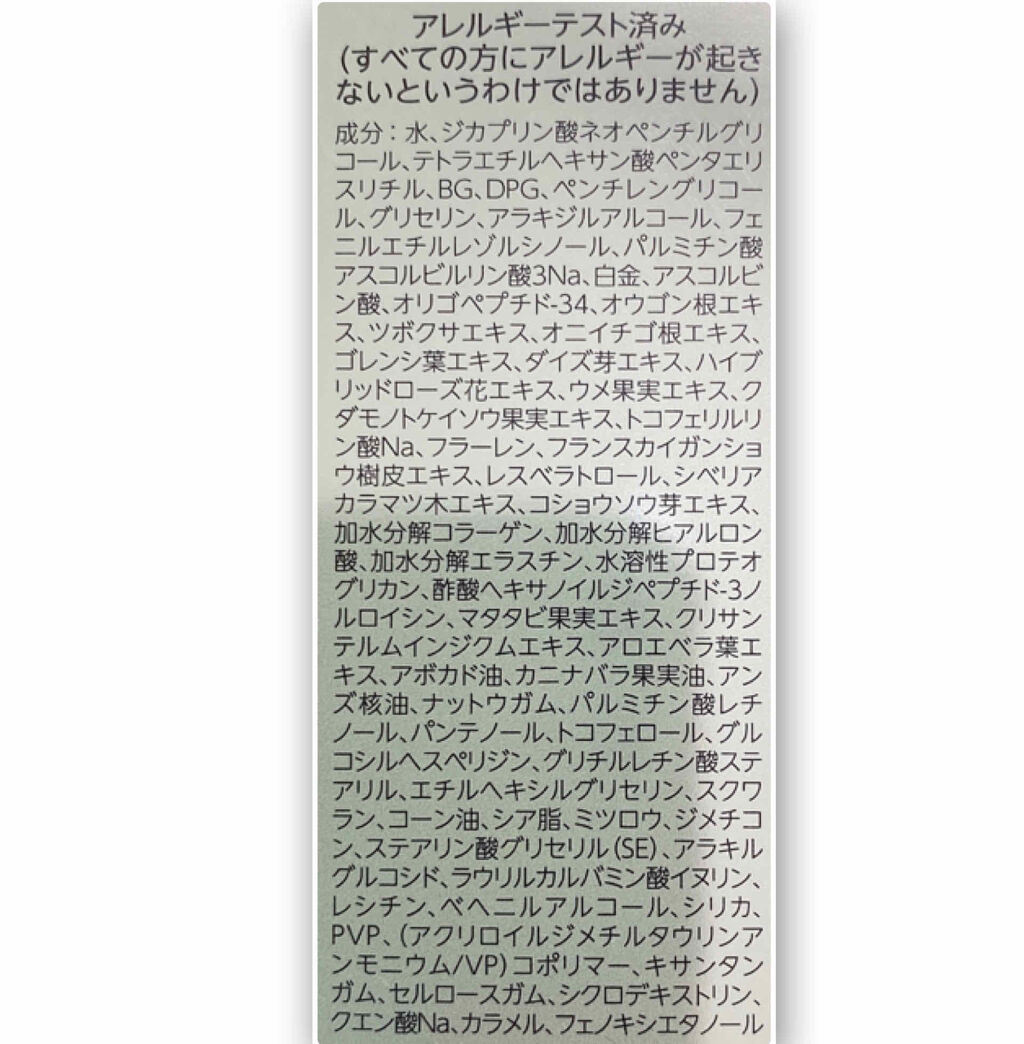 アレルギーテスト済み
(すべての方にアレルギーが起き
ないというわけではありません)
成分：水、ジカプリン酸ネオペンチルグリ
コール、テトラエチルヘキサン酸ペンタエリ
スリチル、BG、DPG、ペンチレングリコー
ル、グリセリン、アラキジルアルコール、フェ
ニルエチルレゾルシノール、パルミチン酸
アスコルビルリン酸3Na、白金、アスコルビ
ン酸、オリゴペプチド-34、オウゴン根エキ
ス、ツボクサエキス、オニイチゴ根エキス、
ゴレンシ葉エキス、ダイズ芽エキス、ハイブ
リッドローズ花エキス、ウメ果実エキス、ク
ダモノトケイソウ果実エキス、トコフェリルリ
ン酸Na、フラーレン、フランスカイガンショ
ウ樹皮エキス、レスベラトロール、シベリア
カラマツ木エキス、コショウソウ芽エキス、
加水分解コラーゲン、加水分解ヒアルロン
酸、加水分解エラスチン、水溶性プロテオ
グリカン、酢酸ヘキサノイルジペプチド-3ノ
ルロイシン、マタタビ果実エキス、クリサン
テルムインジクムエキス、アロエベラ葉エ
キス、アボカド油、カニナバラ果実油、アン
ズ核油、ナットウガム、パルミチン酸レチ
ノール、パンテノール、トコフェロール、グル
コシルヘスペリジン、グリチルレチン酸ステ
アリル、エチルヘキシルグリセリン、スクワ
ラン、コーン油、シア脂、ミツロウ、ジメチコ
ン、ステアリン酸グリセリル(SE)、アラキル
グルコシド、ラウリルカルバミン酸イヌリン、
レシチン、ベヘニルアルコール、シリカ、
PVP、(アクリロイルジメチルタウリンア
ンモニウム/VP)コポリマー、キサンタン
ガム、セルロースガム、シクロデキストリン、
クエン酸Na、カラメル、フェノキシエタノール